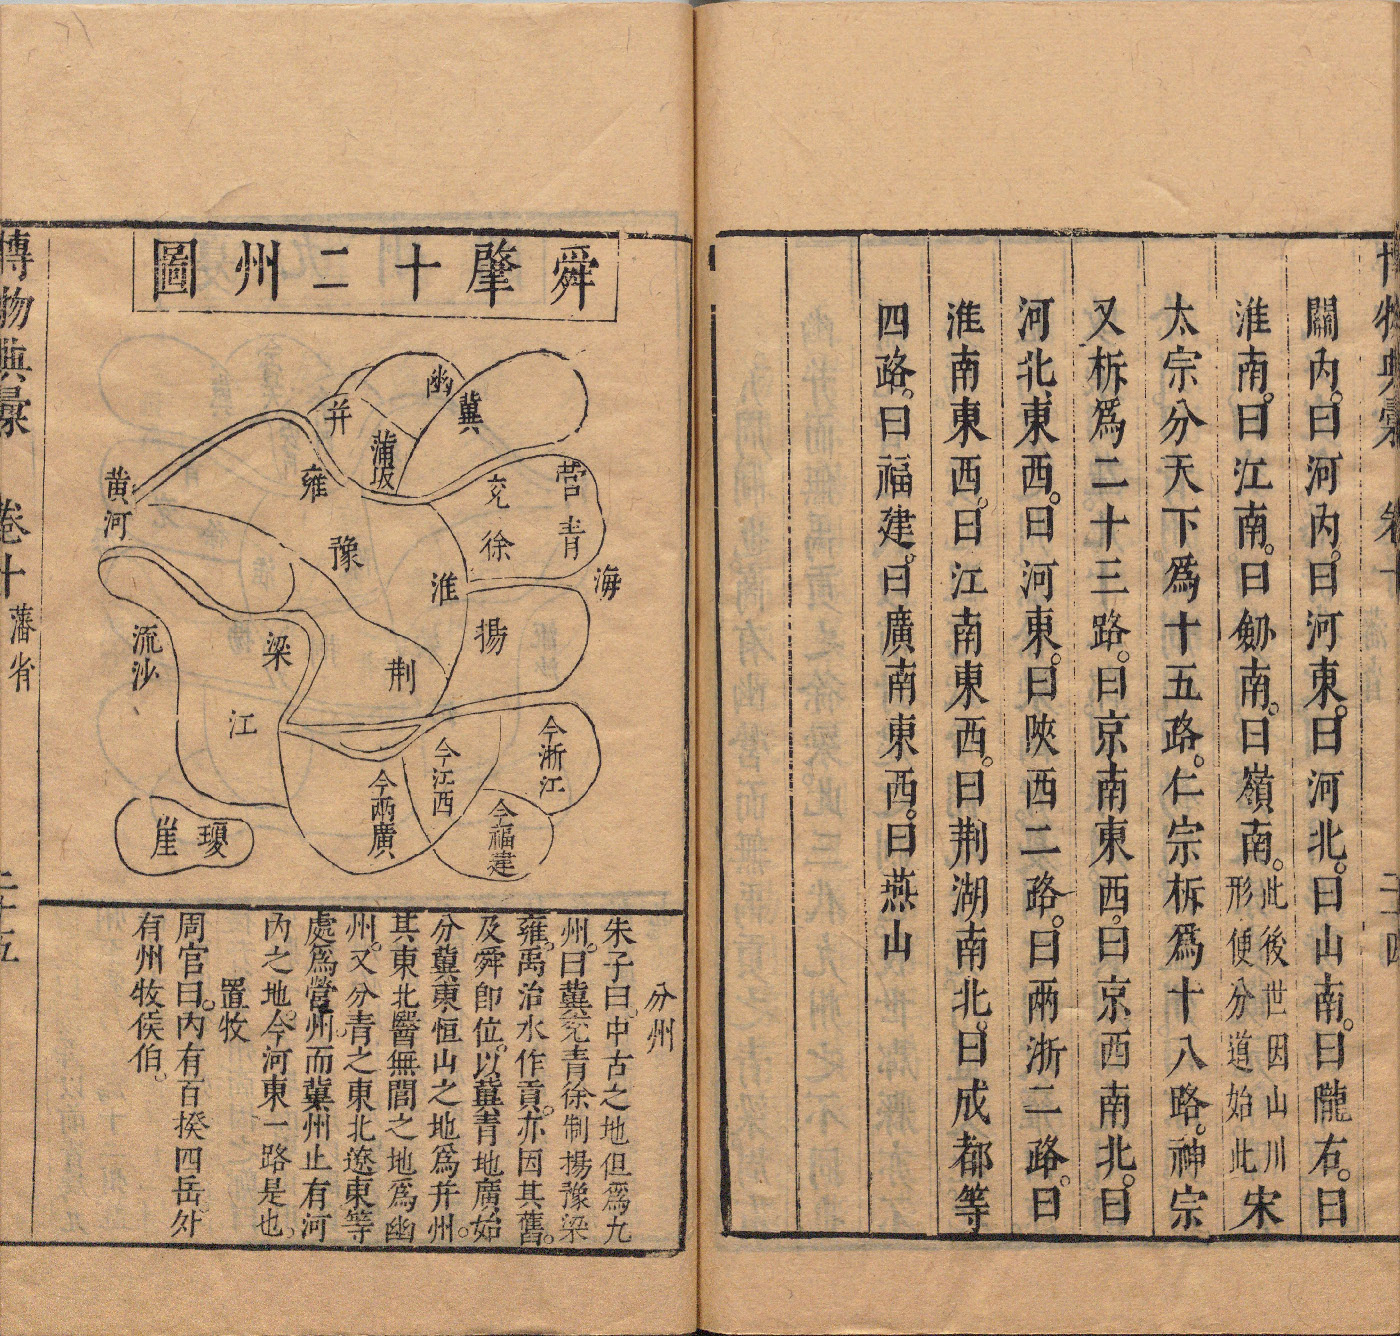 關內。曰河內。曰河東。曰河北。曰山南。曰隴右。曰
淮南。曰江南。曰劒南。曰嶺南。此後世因山川形便分道始此宋
太宗分天下爲十五路。仁宗柝爲十八路。神宗
又柝爲二十三路。曰京南東西。曰京西南北。曰
河北東西。曰河東。曰陝西二路。曰兩浙二路。曰
淮南東西。曰江南東西。曰荆湖南北。曰成都等
四路。曰福建。曰廣南東西。曰燕山
舜肇十二州圖
幽
冀
并
蒲坂
雍
兗
營
青
徐
豫
淮
海
黄河
揚
流沙
梁
荆
江
今浙江
今江西
今兩廣
今福建
瓊崖
分州
朱子曰。中古之地但爲九
州。曰冀兗青徐荆揚豫梁
雍。禹治水作貢。亦因其舊。
及舜卽位。以冀青地廣始
分冀東恒山之地爲并州。
其東北醫無閭之地爲幽
州。又分青之東北遼東等
處爲營州。而冀州止有河
內之地。今河東一路是也。
置牧
周官曰。內有百揆四岳外
有州牧侯伯。
博物典彙 卷十 藩省 二十五